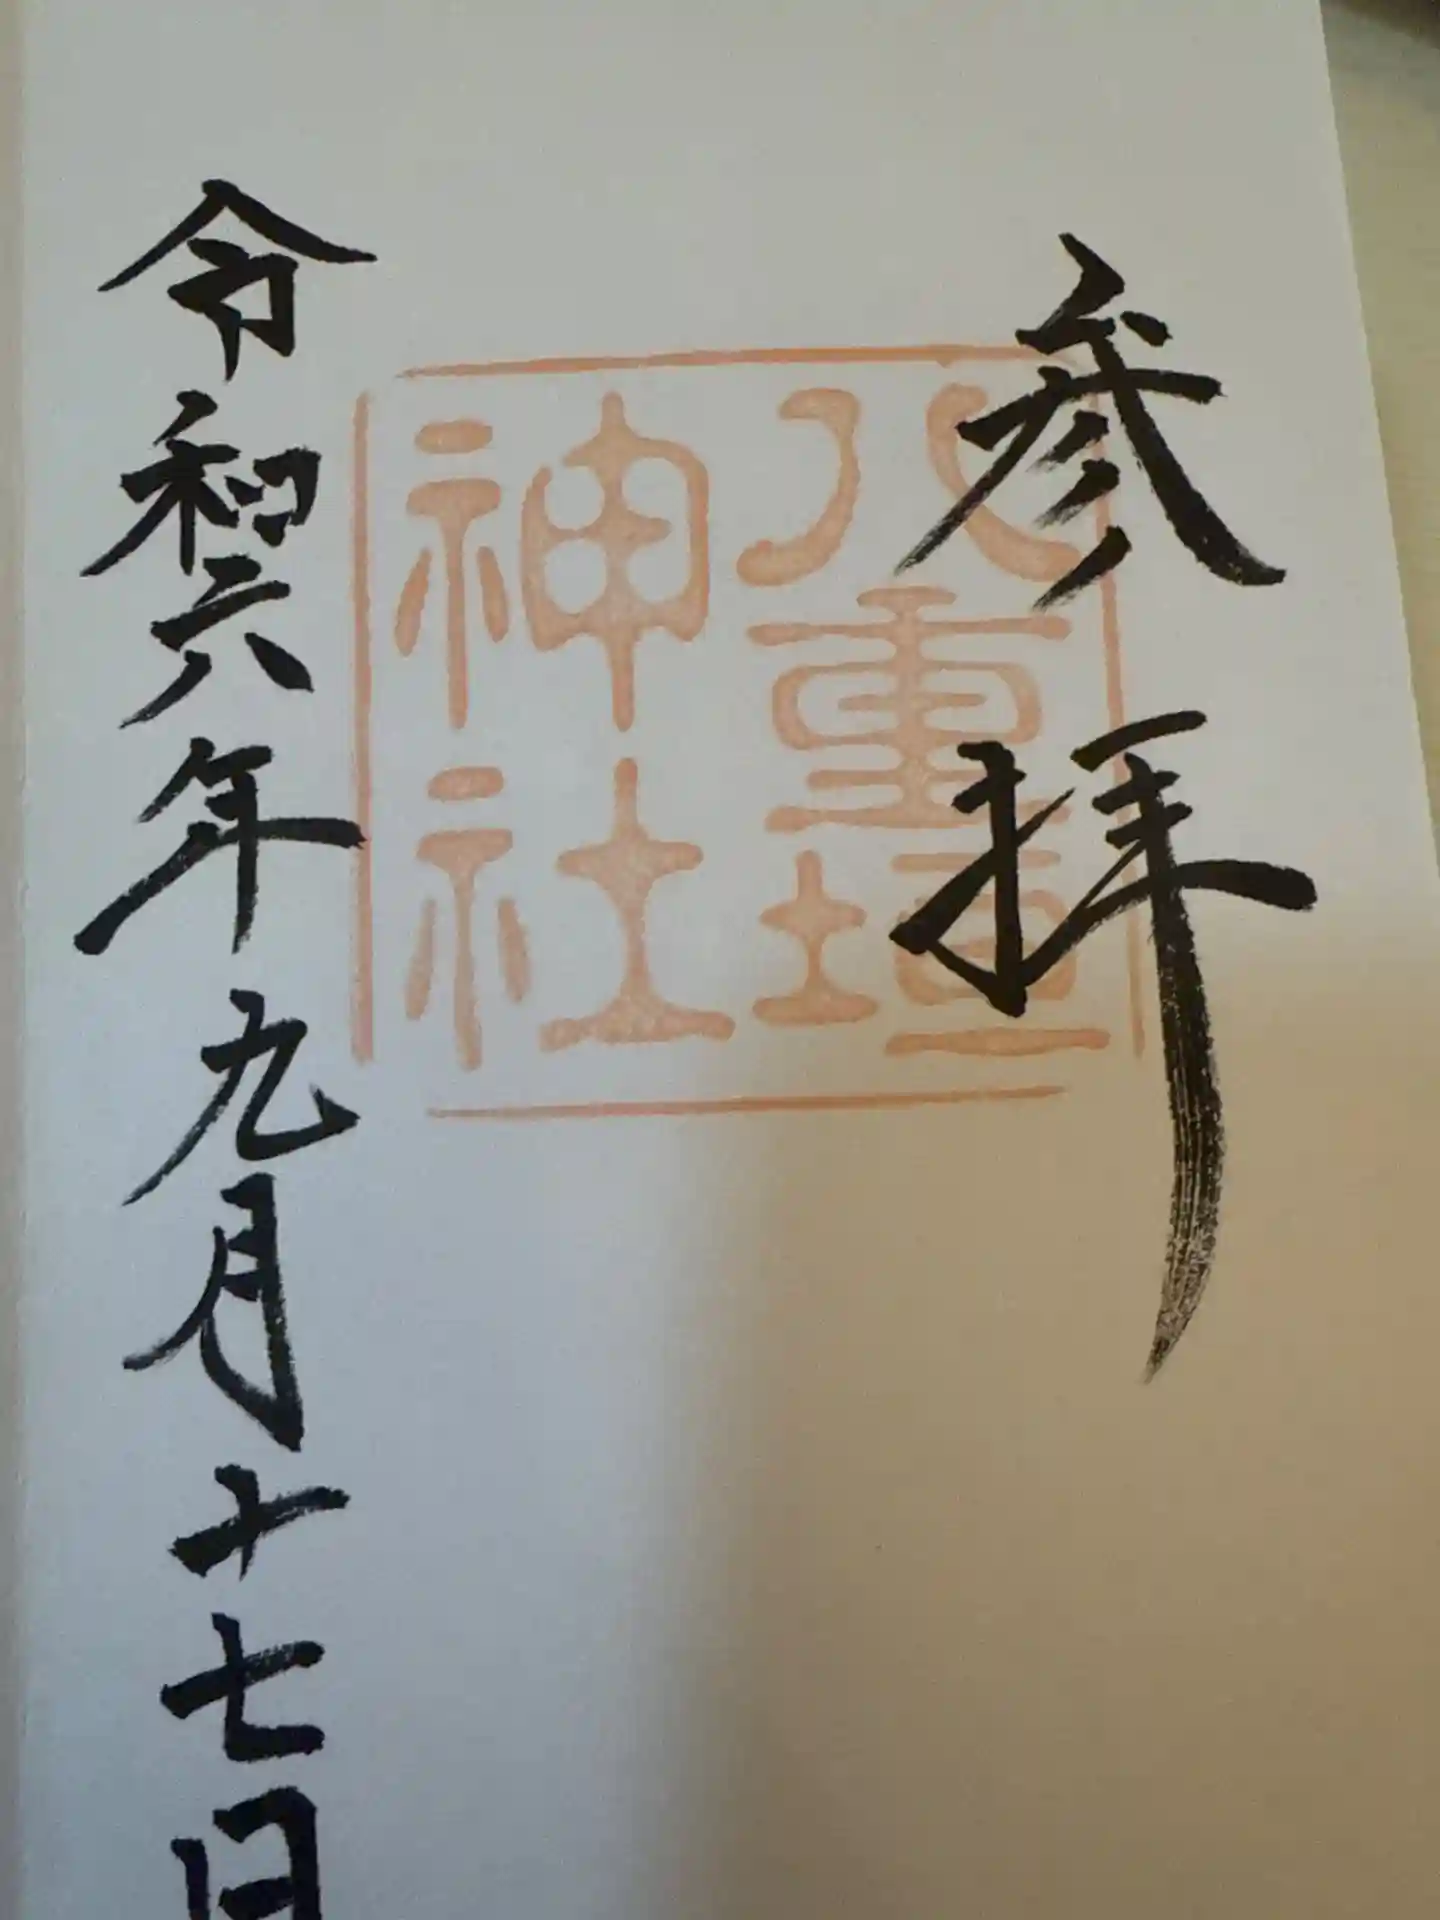 参拝
八重垣
神社
令和六年九月十七日